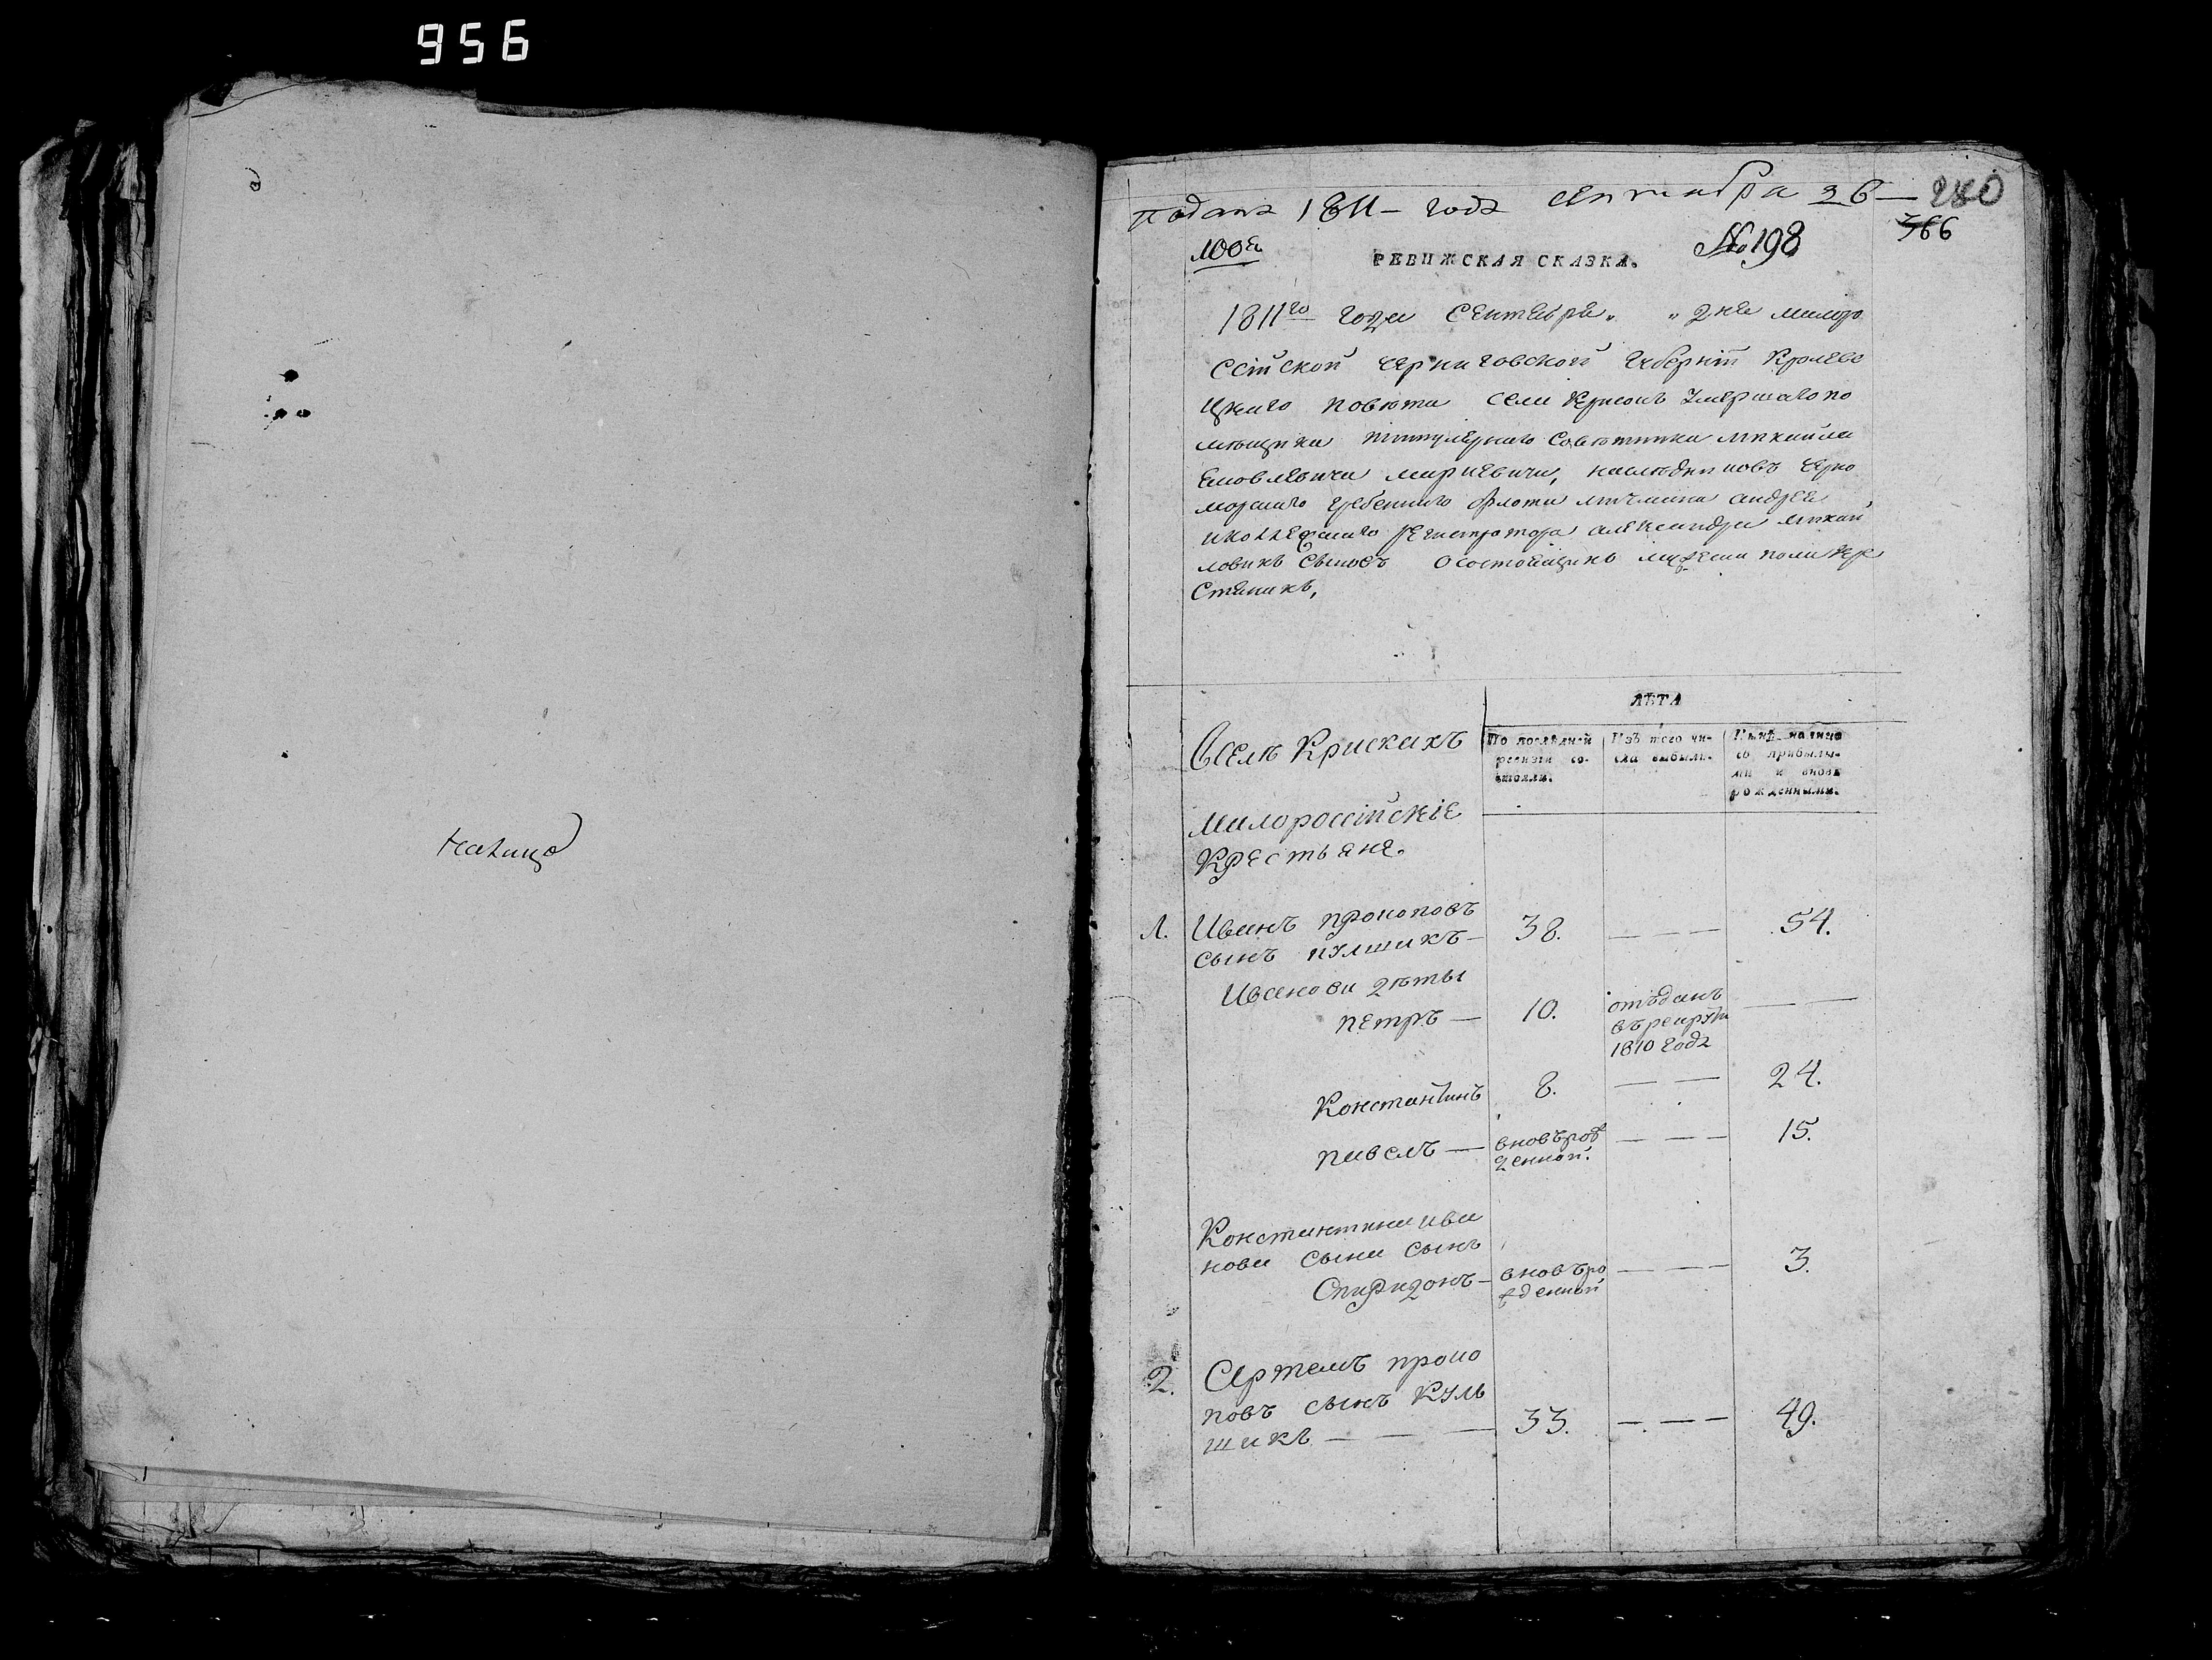 956
налицо
подана 1811 - года сентября 26 - 280
366
100я
№ 198
РЕВИЖСКАЯ СКАЗКА.
1811го года Сентября „ „ дня малоро
ссійской Черниговской Губерніи Кролеве
цкаго повѣта села Крисокъ Умершаго по
мѣщика титулярнаго Совѣтника михайла
Яковлевича маркевича, наслѣдниковъ Черно
морскаго гребеннаго флота мичмана андрея
и коллежскаго регистратора александра михай
ловихъ сыновъ о состоящихъ мужеска пола кре
стянихъ,
ЛѢТА
Всѣлѣ Крискахъ
По послѣдней ревизіи со-стояли.
Изъ того чи-сла выбыли.
Нынѣ на лицо съ прибылы-ми и вновь рожденными.
Малоросійскіе
Крестьяне.
1. Иванъ прокоповъ
сынъ кулшикъ — 38. — — — 54.
Иванови дѣты
петръ — 10. отъданъ — —
въ рекруты
1810 года
Константинъ 8. — — 24.
павелъ — вновъ рож — — — 15.
денной.
Константина ива
нова сына сынъ
Спиридонъ — вновъ ро — — — 3.
жденной
2. Артемъ проко
повъ сынъ Куль
шикъ — — — 33. — — — 49.